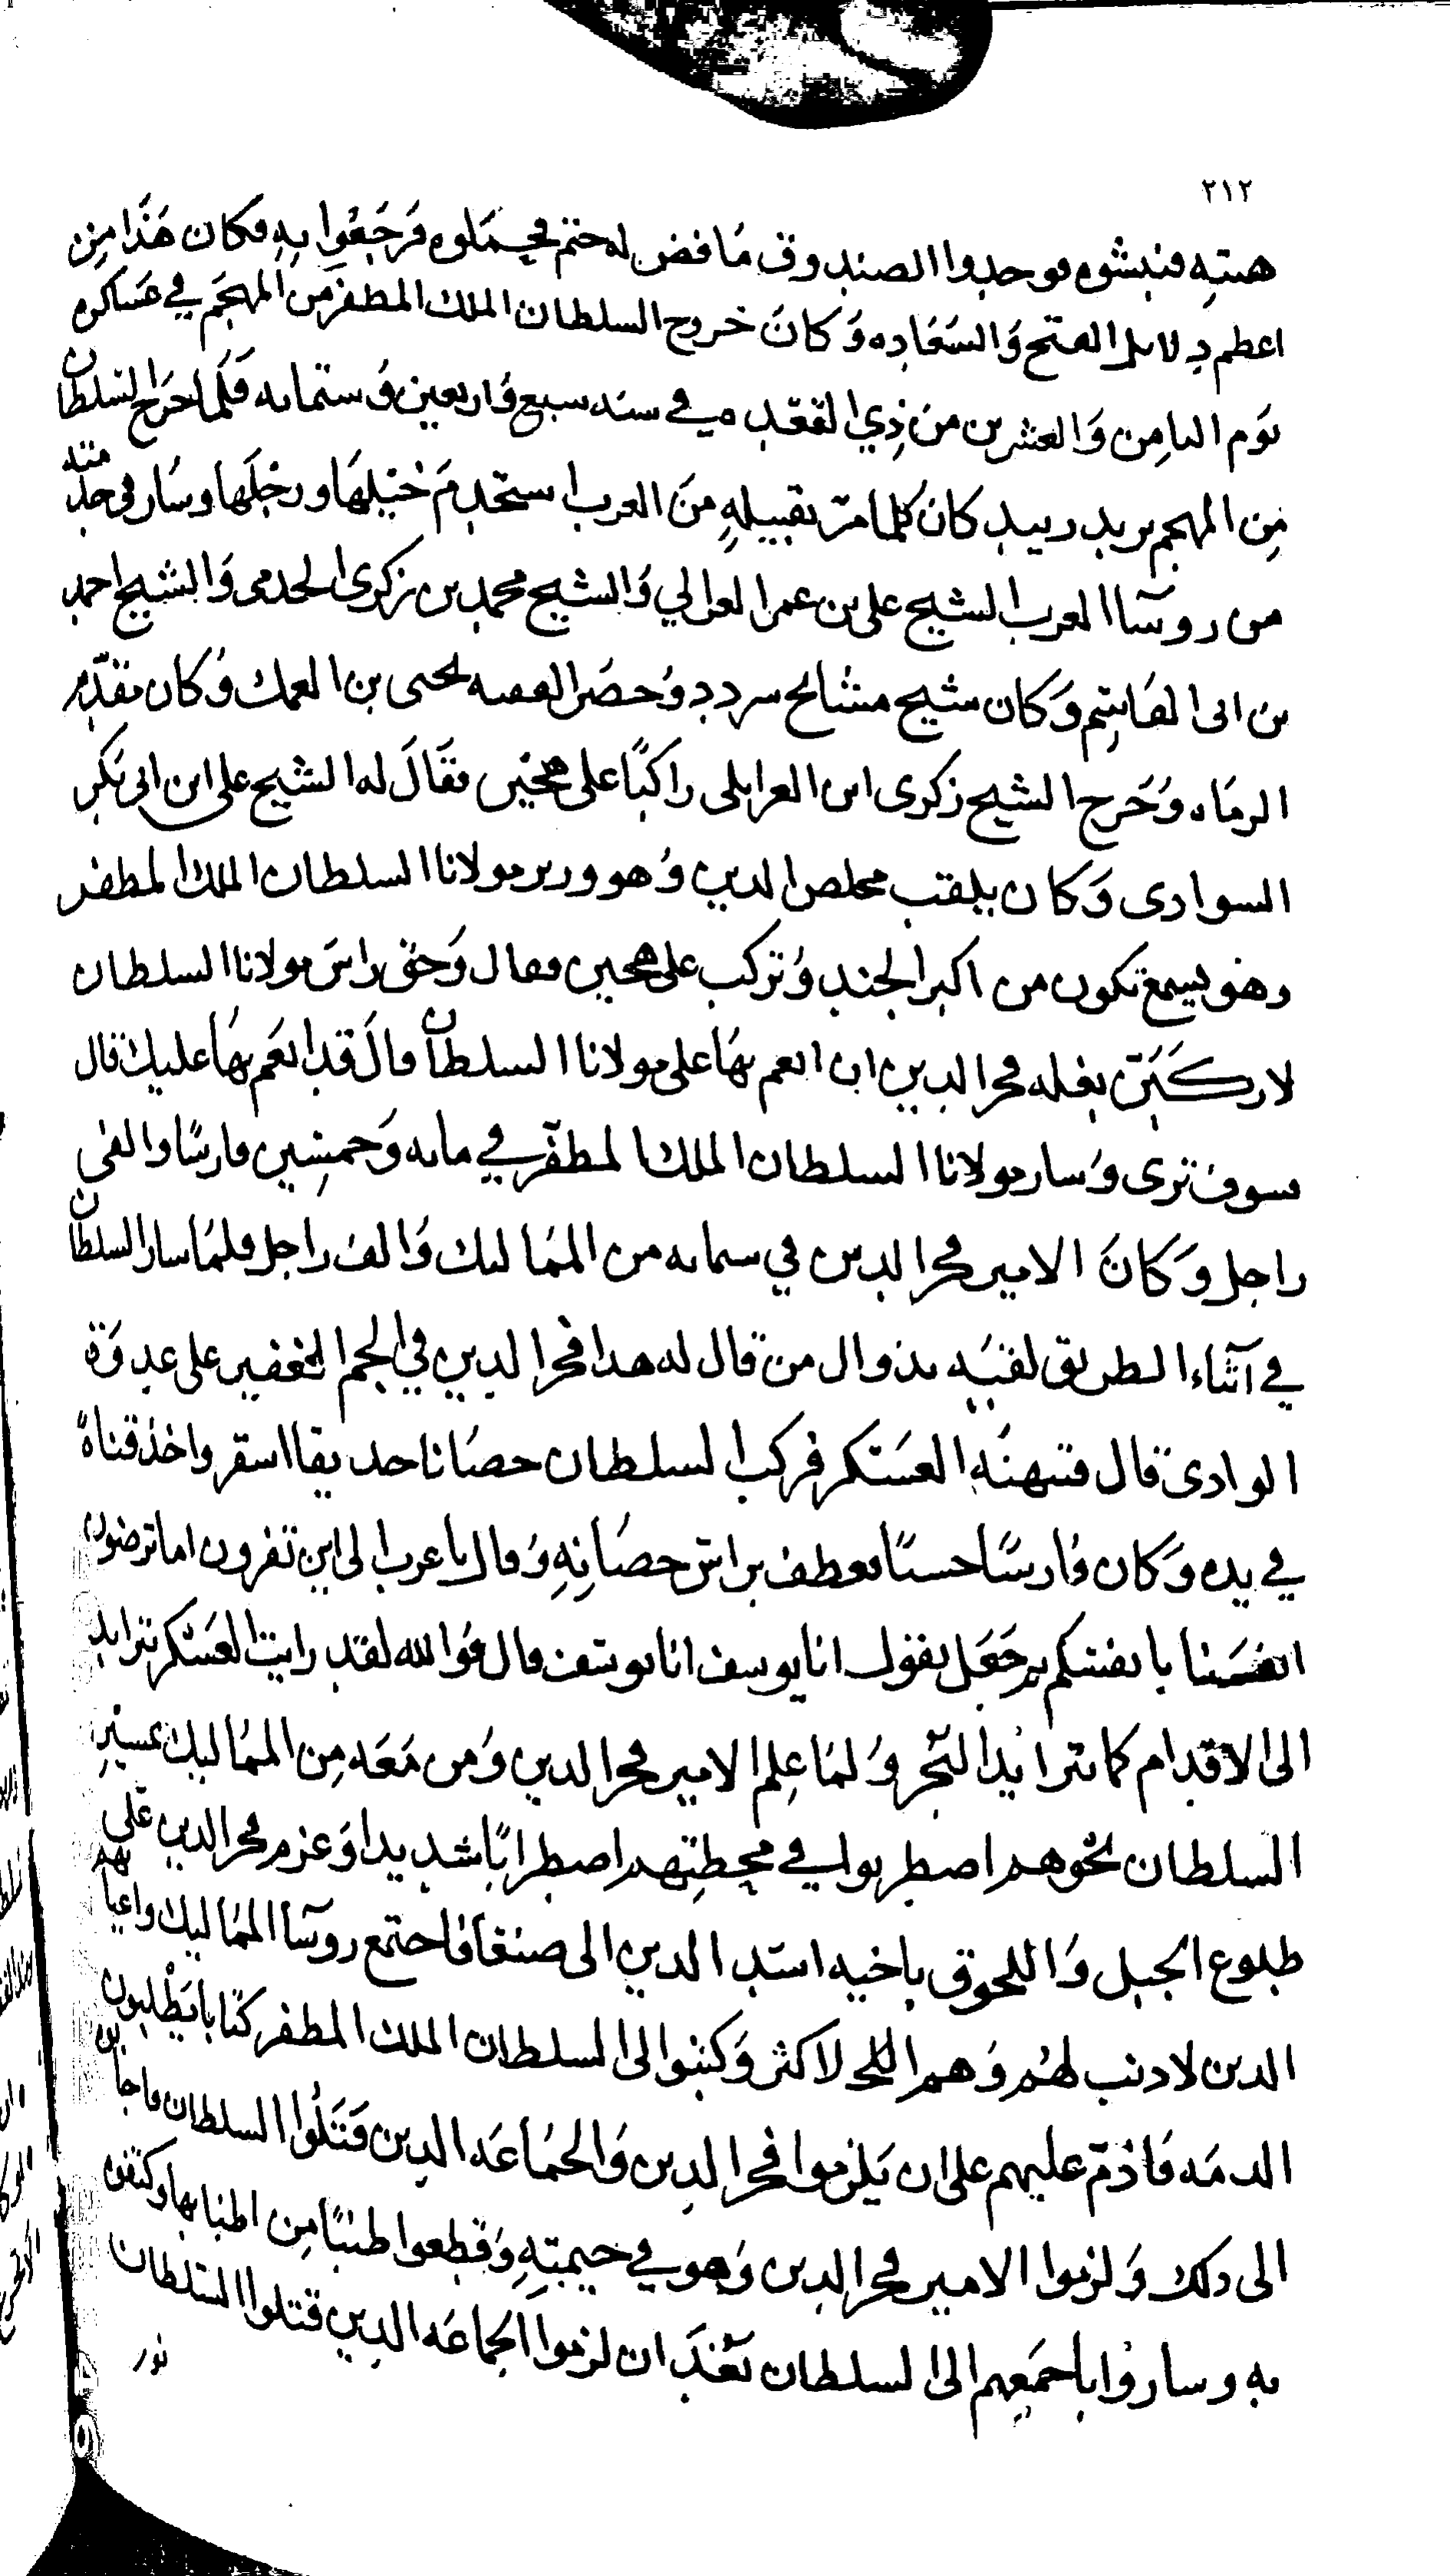 ٢١٢
هيته فنبشوه فوجدوا الصندوق ما فض له ختم فحملوه فرجعوا به فكان هذا من
اعظم دلايل الفتح والسعاده وكان خروج السلطان الملك المظفر من المهجم في عساكره
يوم الثامن والعشرين من ذي القعده في سنه سبع واربعين وستمايه فلما خرج السلطان
من المهجم يريد زبيد كان كلما مر بقبيله من العرب استخدم خيلها ورجلها وسار في خدمته
من روسا العرب الشيخ علي بن عمر والشيخ محمد بن زكرى والشيخ احمد
بن ابى القاسم وكان شيخ مشايخ سردد وحضر الفقيه يحيى بن العمك وكان مقدم
الرماه وخرج الشيخ زكرى ابن راكبا على هجين فقال له الشيخ علي ابن ابى بكر
السوادى وكان يلقب مخلص الدين وهو وزير مولانا السلطان الملك المظفر
وهو يسمع تكون من اكبر الجند وتركب على هجين فقال وحق راس مولانا السلطان
لاركبن بغله فخر الدين ان انعم بها على مولانا السلطان قال قد انعم بها عليك قال
سوف ترى وسار مولانا السلطان الملك المظفر في مايه وخمسين فارسا والفى
راجل وكان الامير فخر الدين في ستمايه من المماليك والف راجل فلما سار السلطان
في اثناء الطريق لقيه بذوال من قال له هذا فخر الدين في الجم الغفير على عدوة
الوادى قال فتنهنه العسكر فركب السلطان حصانا اشقر واخذ قناة
في يده وكان فارسا حسنا فعطف براس حصانه وقال يا عرب الى اين تفرون اما ترضون
انفسنا بانفسكم ثم جعل يقول انا يوسف انا يوسف قال فوالله لقد رايت العسكر تزايد
الى الاقدام كما تزايد البحر ولما علم الامير فخر الدين ومن معه من المماليك بمسير
السلطان نحوهم اضطربوا في محطتهم اضطرابا شديدا وعزم فخر الدين على
طلوع الجبل واللحوق باخيه اسد الدين الى صنعا فاجتمع روسا المماليك واعيانهم
الدين لا دنب لهم وهم الاكثر وكتبوا الى السلطان الملك المظفر كتابا يطلبون
الدمه فاذم عليهم على ان يلزموا فخر الدين والجماعه الدين قتلوا السلطان فاجابوه
الى دلك ولزموا الامير فخر الدين وهو في خيمته وقطعوا طنبا من اطنابها وكتفوه
به وساروا باجمعهم الى السلطان بعد ان لزموا الجماعه الدين قتلوا السلطان
نور